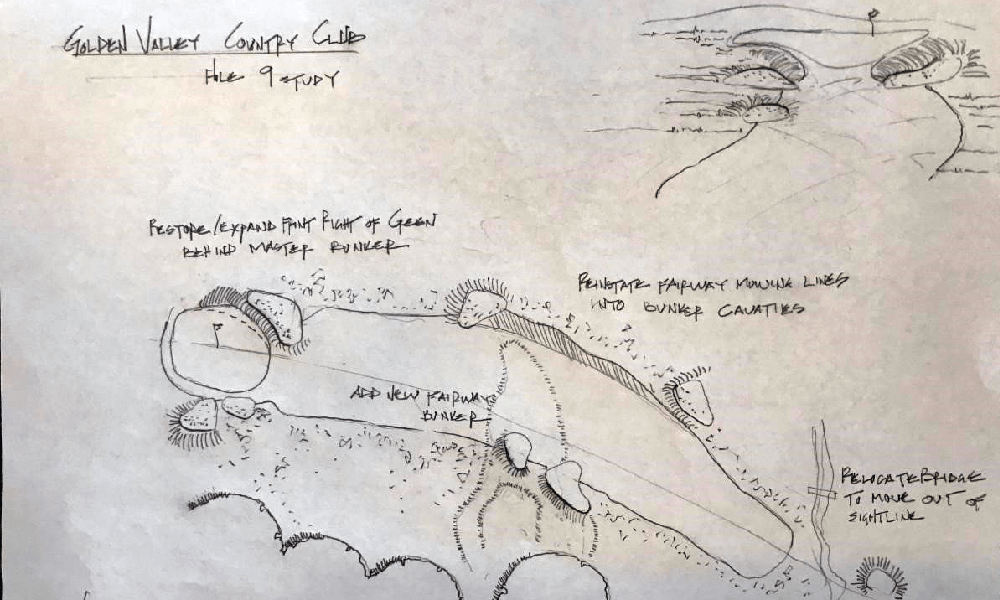 GOLDEN VALLEY COUNTRY CLUB
HOLE 9 STUDY
RESTORE/EXPAND FRONT RIGHT OF GREEN
BEHIND MASTER BUNKER
REINSTATE FAIRWAY MOWING LINES
INTO BUNKER CAVATIES
ADD NEW FAIRWAY
BUNKER
RELOCATE BRIDGE
TO MOVE OUT OF
SIGHTLINE